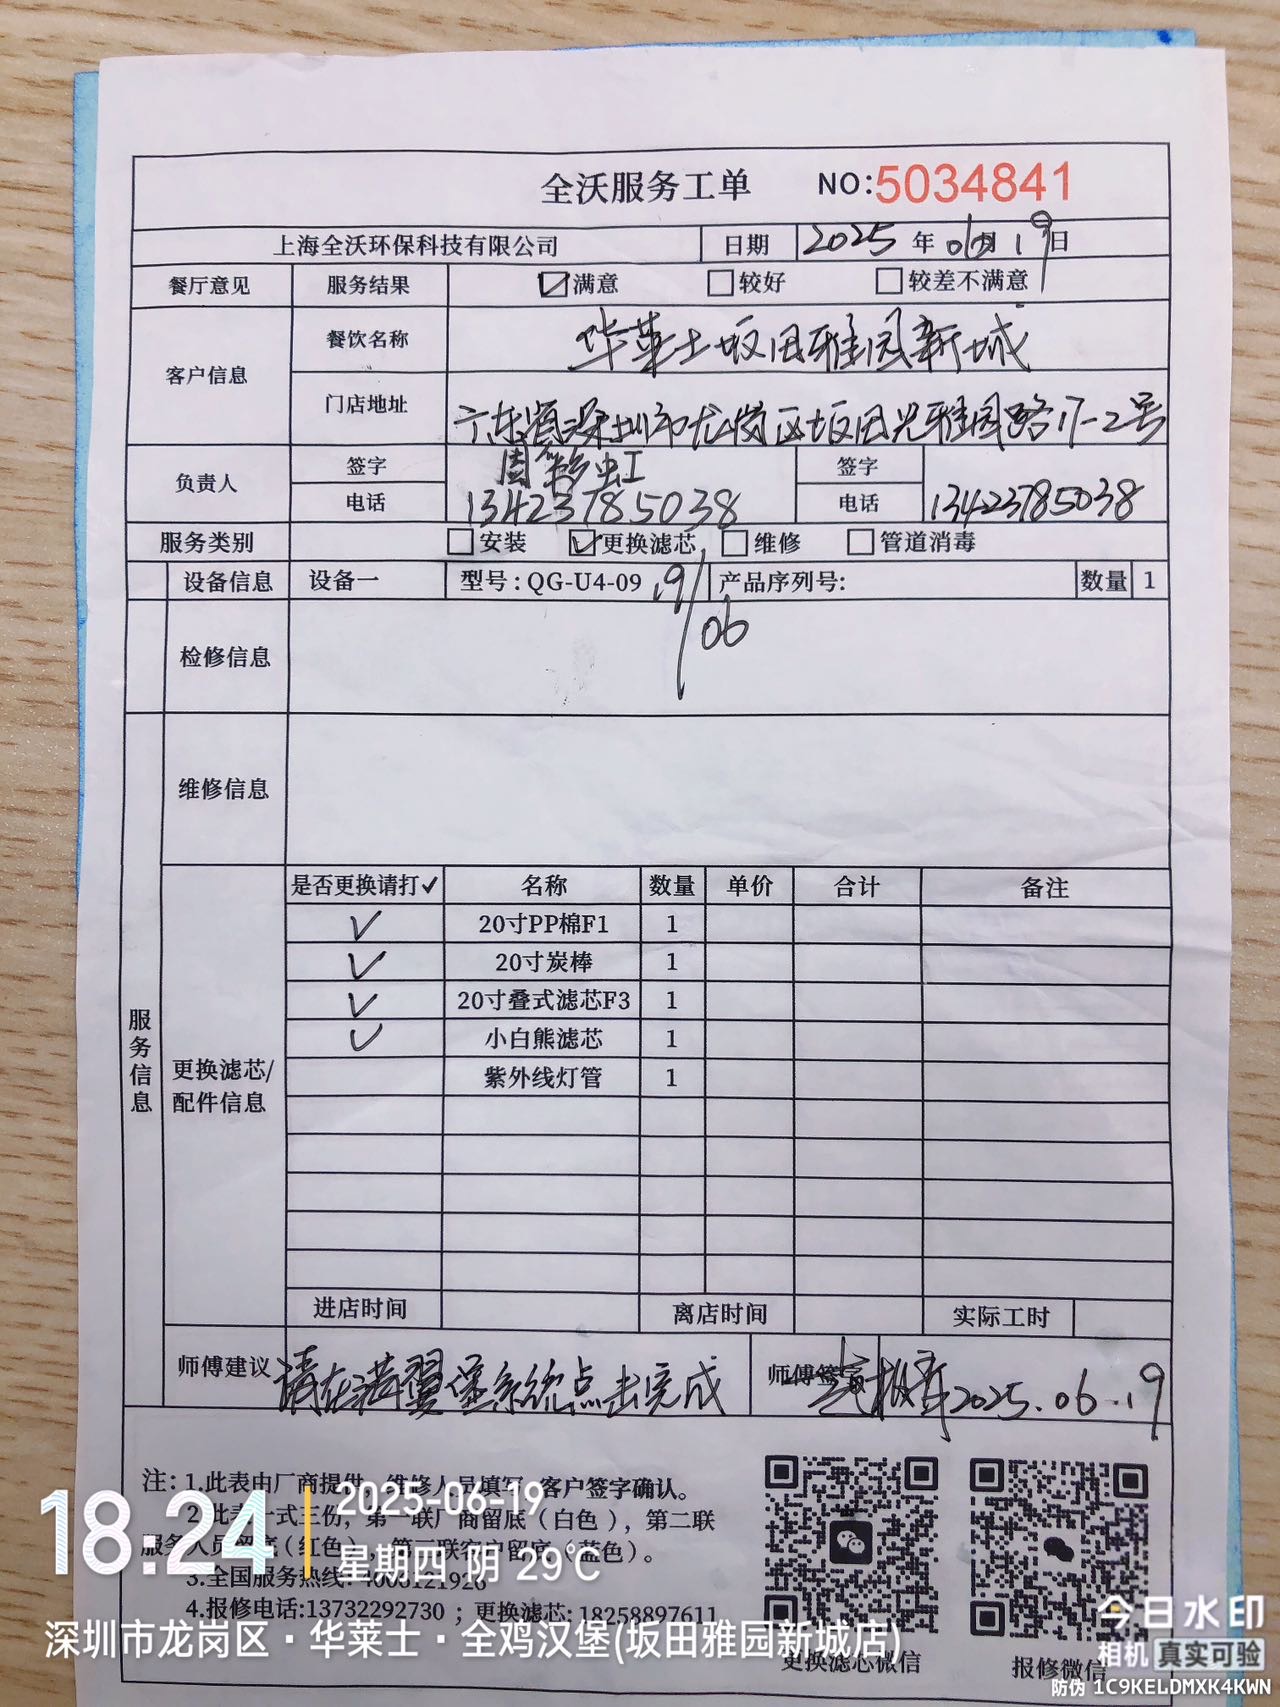 全沃服务工单 NO:5034841
上海全沃环保科技有限公司 日期 2025年06月19日
餐厅意见 服务结果 ☑满意 □较好 □较差不满意
客户信息 餐饮名称 华莱士坂田雅园新城
门店地址 广东省深圳市龙岗区坂田光雅园路17-2号
负责人 签字 周 虹 签字
电话 13423785038 电话 13423785038
服务类别 □安装 ☑更换滤芯 □维修 □管道消毒
设备信息 设备一 型号:QG-U4-09 产品序列号: 数量 1
19/06
检修信息
维修信息
服务信息
更换滤芯/
配件信息
是否更换请打✓ 名称 数量 单价 合计 备注
✓ 20寸PP棉F1 1
✓ 20寸炭棒 1
✓ 20寸叠式滤芯F3 1
✓ 小白熊滤芯 1
紫外线灯管 1
进店时间 离店时间 实际工时
师傅建议 请在 翼堡系统点击完成 师傅签字 2025.06.19
注: 1.此表由厂商提供，维修人员填写，客户签字确认。
2.此表一式三份，第一联厂商留底（白色），第二联
服务人员留底（红色），第三联客户留底（蓝色）。
3.全国服务热线: 4006121926
4.报修电话:13732292730 ；更换滤芯: 18258897611
更换滤芯微信 报修微信
18:24
2025-06-19
星期四 阴 29℃
深圳市龙岗区·华莱士·全鸡汉堡(坂田雅园新城店)
今日水印
相机 真实可验
防伪 1C9KELDMXK4KWN